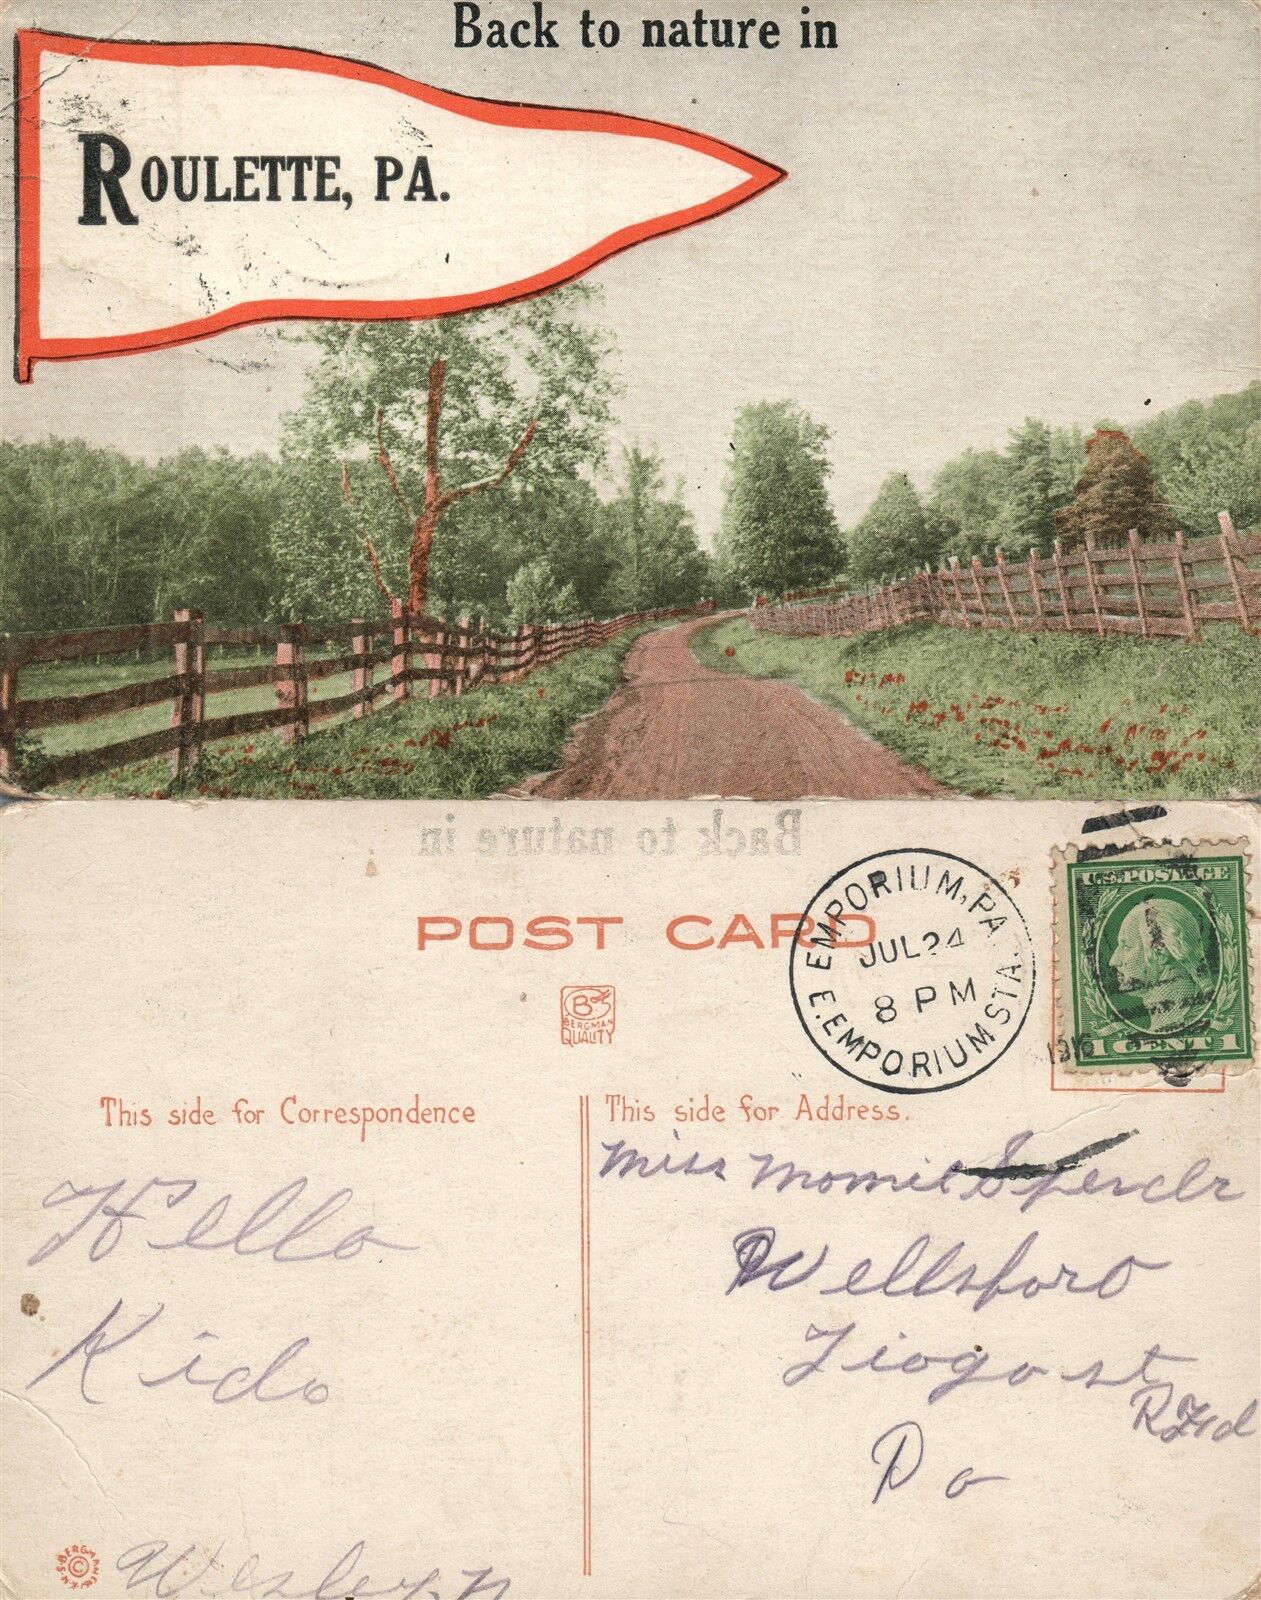 Back to nature in
ROULETTE, PA.
Back to nature in
POST CARD
EMPORIUM, PA.
JUL 24
8 PM
E. EMPORIUM STA.
1916
U.S. POSTAGE
1 CENT 1
B
BERGMAN
QUALITY
This side for Correspondence
This side for Address.
Miss Spencer
Wellsboro
Tioga st
R Frd
Pa
Hello
Kido
Wesley. N
BERGMAN ©